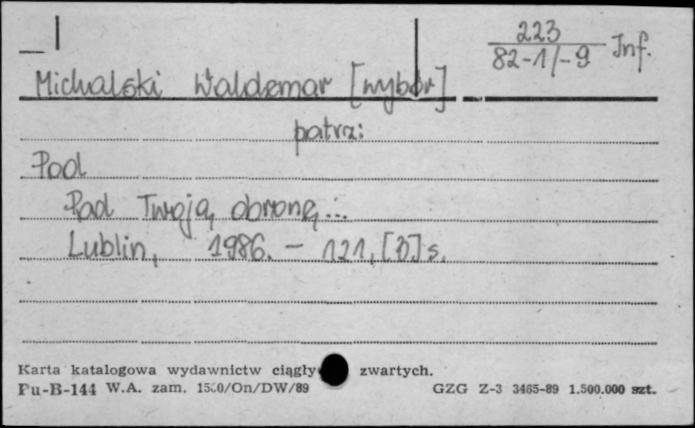 223
82-1/-9 Inf.
Michalski Waldemar [wybór]
patrz:
Pod
Pod Twoją obronę...
Lublin, 1986. – 121, [3] s.
Karta katalogowa wydawnictw ciągły zwartych.
Pu-B-144 W.A. zam. 1500/On/DW/89 GZG Z-3 3465-89 1.500.000 szt.